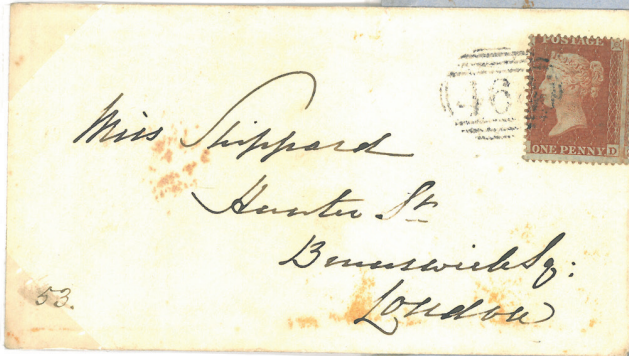 POSTAGE
ONE PENNY D
Miss Shippard
Hunter St
Brunswick Sq:
London
53.